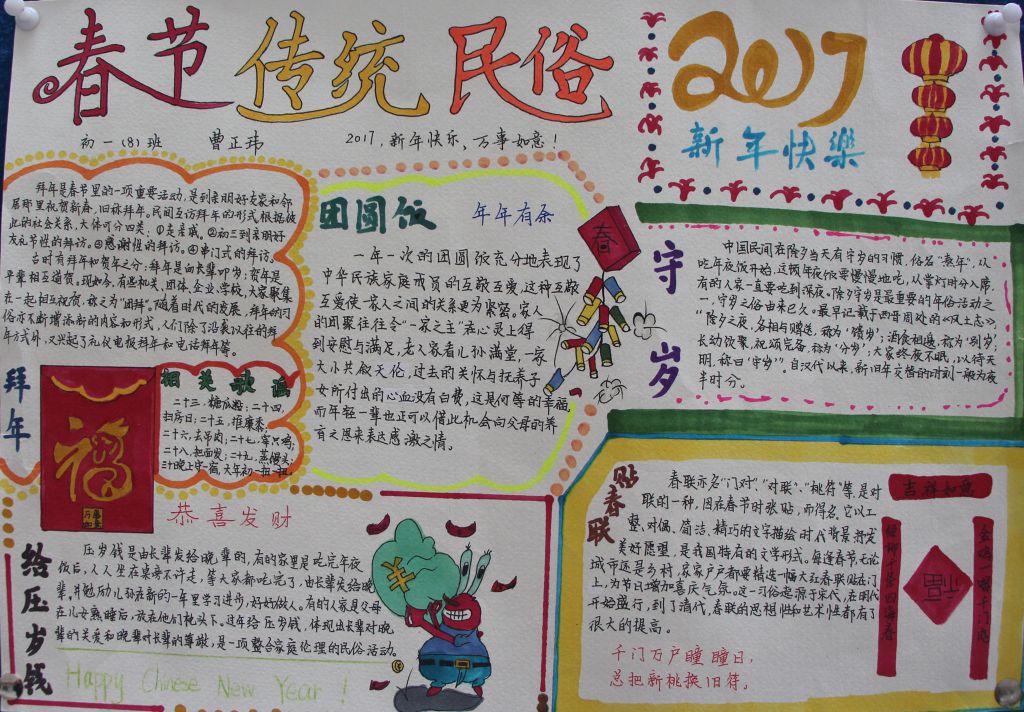 春节传统民俗
初一(8)班 曹正玮 2017,新年快乐、万事如意!
2017
新年快樂
拜年是春节里的一项重要活动,是到亲朋好友家和邻
居那里祝贺新春,旧称拜年。民间互访拜年的形式,根据彼
此的社会关系,大体可分四类:①走亲戚。②初三到亲朋好
友礼节性的拜访。③感谢性的拜访。④串门式的拜访。
古时有拜年和贺年之分:拜年是向长辈叩岁;贺年是
平辈相互道贺。现如今,有些机关、团体、企业、学校,大家聚集
在一起相互祝贺,称之为“团拜”。随着时代的发展,拜年的习
俗亦不断增添新的内容和形式,人们除了沿袭以往的拜
年方式外,又兴起了礼仪电报拜年和电话拜年等。
拜年
福
相关歌谣
二十三,糖瓜粘;二十四,
扫房日;二十五,推糜黍;
二十六,去吊肉;二十七,宰只鸡;
二十八,把面发;二十九,蒸馒头;
三十晚上守一宿,大年初一扭一扭。
恭喜发财
团圆饭 年年有余
一年一次的团圆饭充分地表现了
中华民族家庭成员的互敬互爱,这种互敬
互爱使一家人之间的关系更为紧密。家人
的团聚往往令“一家之主”在心灵上得
到安慰与满足,老人家看儿孙满堂,一家
大小共叙天伦,过去的关怀与抚养子
女所付出的心血没有白费,这是何等的幸福。
而年轻一辈也正可以借此机会向父母的养
育之恩来表达感激之情。
春
守岁
中国民间在除夕当天有守岁的习惯,俗名“熬年”,从
吃年夜饭开始,这顿年夜饭要慢慢地吃,从掌灯时分入席,
有的人家一直要吃到深夜。除夕守岁是最重要的年俗活动之
一,守岁之俗由来已久。最早记载于西晋周处的《风土志》:
“除夕之夜,各相与赠送,称为‘馈岁’;酒食相邀,称为‘别岁’;
长幼饮聚,祝颂完备,称为‘分岁’;大家终夜不眠,以待天
明,称曰‘守岁’”。自汉代以来,新旧年交替的时刻一般为夜
半时分。
给压岁钱
压岁钱是由长辈发给晚辈的,有的家里是吃完年夜
饭后,人人坐在桌旁不许走,等大家都吃完了,由长辈发给晚
辈,并勉励儿孙在新的一年里学习进步,好好做人。有的人家是父母
在儿女熟睡后,放在他们枕头下。过年给压岁钱,体现出长辈对晚
辈的关爱和晚辈对长辈的尊敬,是一项整合家庭伦理的民俗活动。
Happy Chinese New Year !
¥
贴春联
春联亦名“门对”、“对联”、“桃符”等,是对
联的一种,因在春节时张贴,而得名。它以工
整、对偶、简洁、精巧的文字描绘时代背景,抒发
美好愿望,是我国特有的文学形式。每逢春节,无论
城市还是乡村,家家户户都要精选一幅大红春联贴在门
上,为节日增加喜庆气氛。这一习俗起源于宋代,在明代
开始盛行,到了清代,春联的思想性和艺术性都有了
很大的提高。
千门万户曈曈日,
总把新桃换旧符。
吉祥如意
福